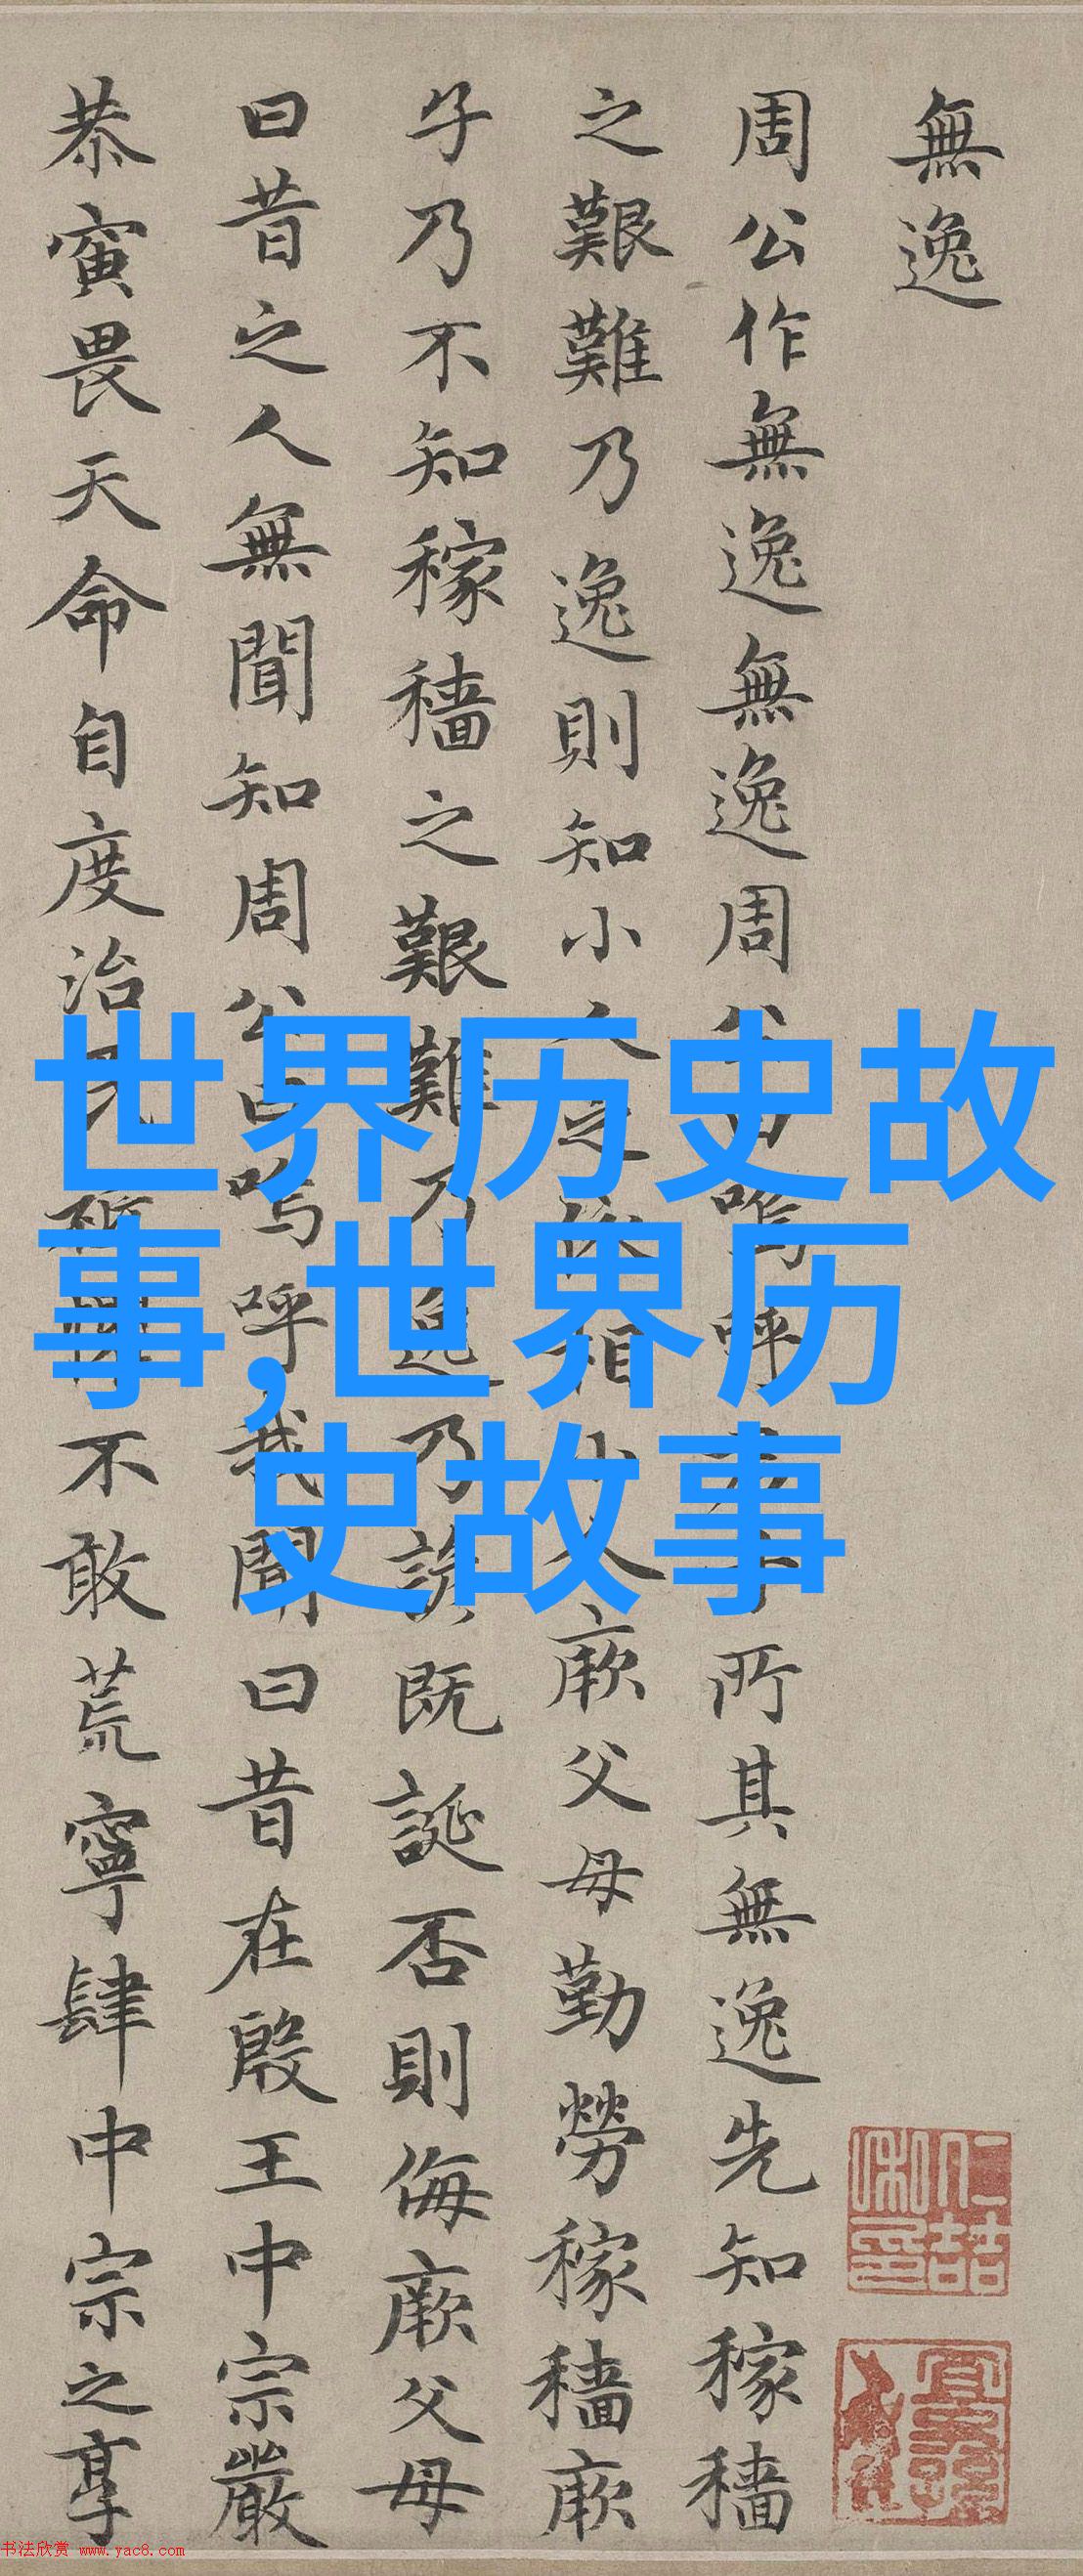 無逸
周公作無逸無逸周公曰嗚呼所其無逸先知稼穡
之艱難乃逸則知小人之依相小人厥父母勤勞稼穡厥
子乃不知稼穡之艱難乃逸乃諺既誕否則侮厥父母
曰昔之人無聞知周公曰嗚呼我聞曰昔在殷王中宗嚴
恭寅畏天命自度治民祗懼不敢荒寧肆中宗之享
世界历史故
事,世界历
史故事
书法欣赏 www.yac8.com